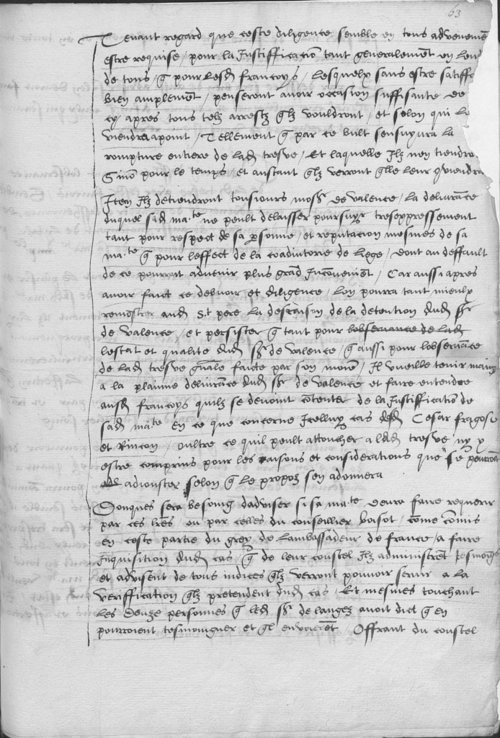 63
Tenant regard que ceste diligence semble en tous advenemēt
estre requise / pour la Justifficatiō tant generalemēt en lieu
de tous q̃ pour lesd francoys / Lesquelz sans estre satiffz
bien amplemēt / penseront avoir occasion suffisante de
cy apres tous telz arrestz qlz vouldront / et selon qui le
viendra a point / Tellement q̃ par ce bult sensuyvra la
rompture entiere de lad tresve / Et laquelle Ilz nen tiendro
Sinō pour le temps et autant qlz verront qlle leur q̃viendra
Item Ilz detiendront tousiours mosr de valence / La delivrāce
duquel sad mate ne peult delaisser poursuyr tresexpressement
tant pour respect de sa psonne / et reputacion mesmes de sa
mate q̃ pour leffect de la coadiutorie de Liege / dont au deffault
de ce pourroit advenir plus grād Incōveniēt / Car aussi apres
avoir faict ce debvoir et diligence / Lon pourra tant mieulx
remonstrer aud St pere la desraison de la detention dud sr
de valence / et persister q̃ tant pour lobservance de lad
lestat et qualite dud sr de valence / q̃ aussi pour lobservāce
de lad tresve gñale faicte par son moien / Il vueille tenir main
a la plaine delivrāce dud sr de valence et faire entendre
ausd francoys quilz se devoient cōtenter de la Justificatiō de
sad mate en ce que concerne Icelluy cas desd Cesar fregose
et Rincon / oultre ce quil peult attoucher a lad tresve ny y
estre comprins pour les raisons et consideratiōs que se pourra
adiouster selon q̃ le propoz sen adonnera
Doncques sera besoing dadviser si sa mate vouldra faire requerir
par ces lres ou par celles du conseillier boisot / come cōmis
en ceste partie du greg de lambassadeur de france / a faire
Inquisition dud cas / q̃ de leur coustel Ilz administrēt tesmoings
et advisent de tous indices qlz verront pouvoir servir a la
veriffication qlz pretendent dud cas / Et mesmes touchant
les deuze personnes q̃ led sr de langez avoit dict q̃ en
pourroient tesmoigner et ql envoieroēt / Offrant du coustel